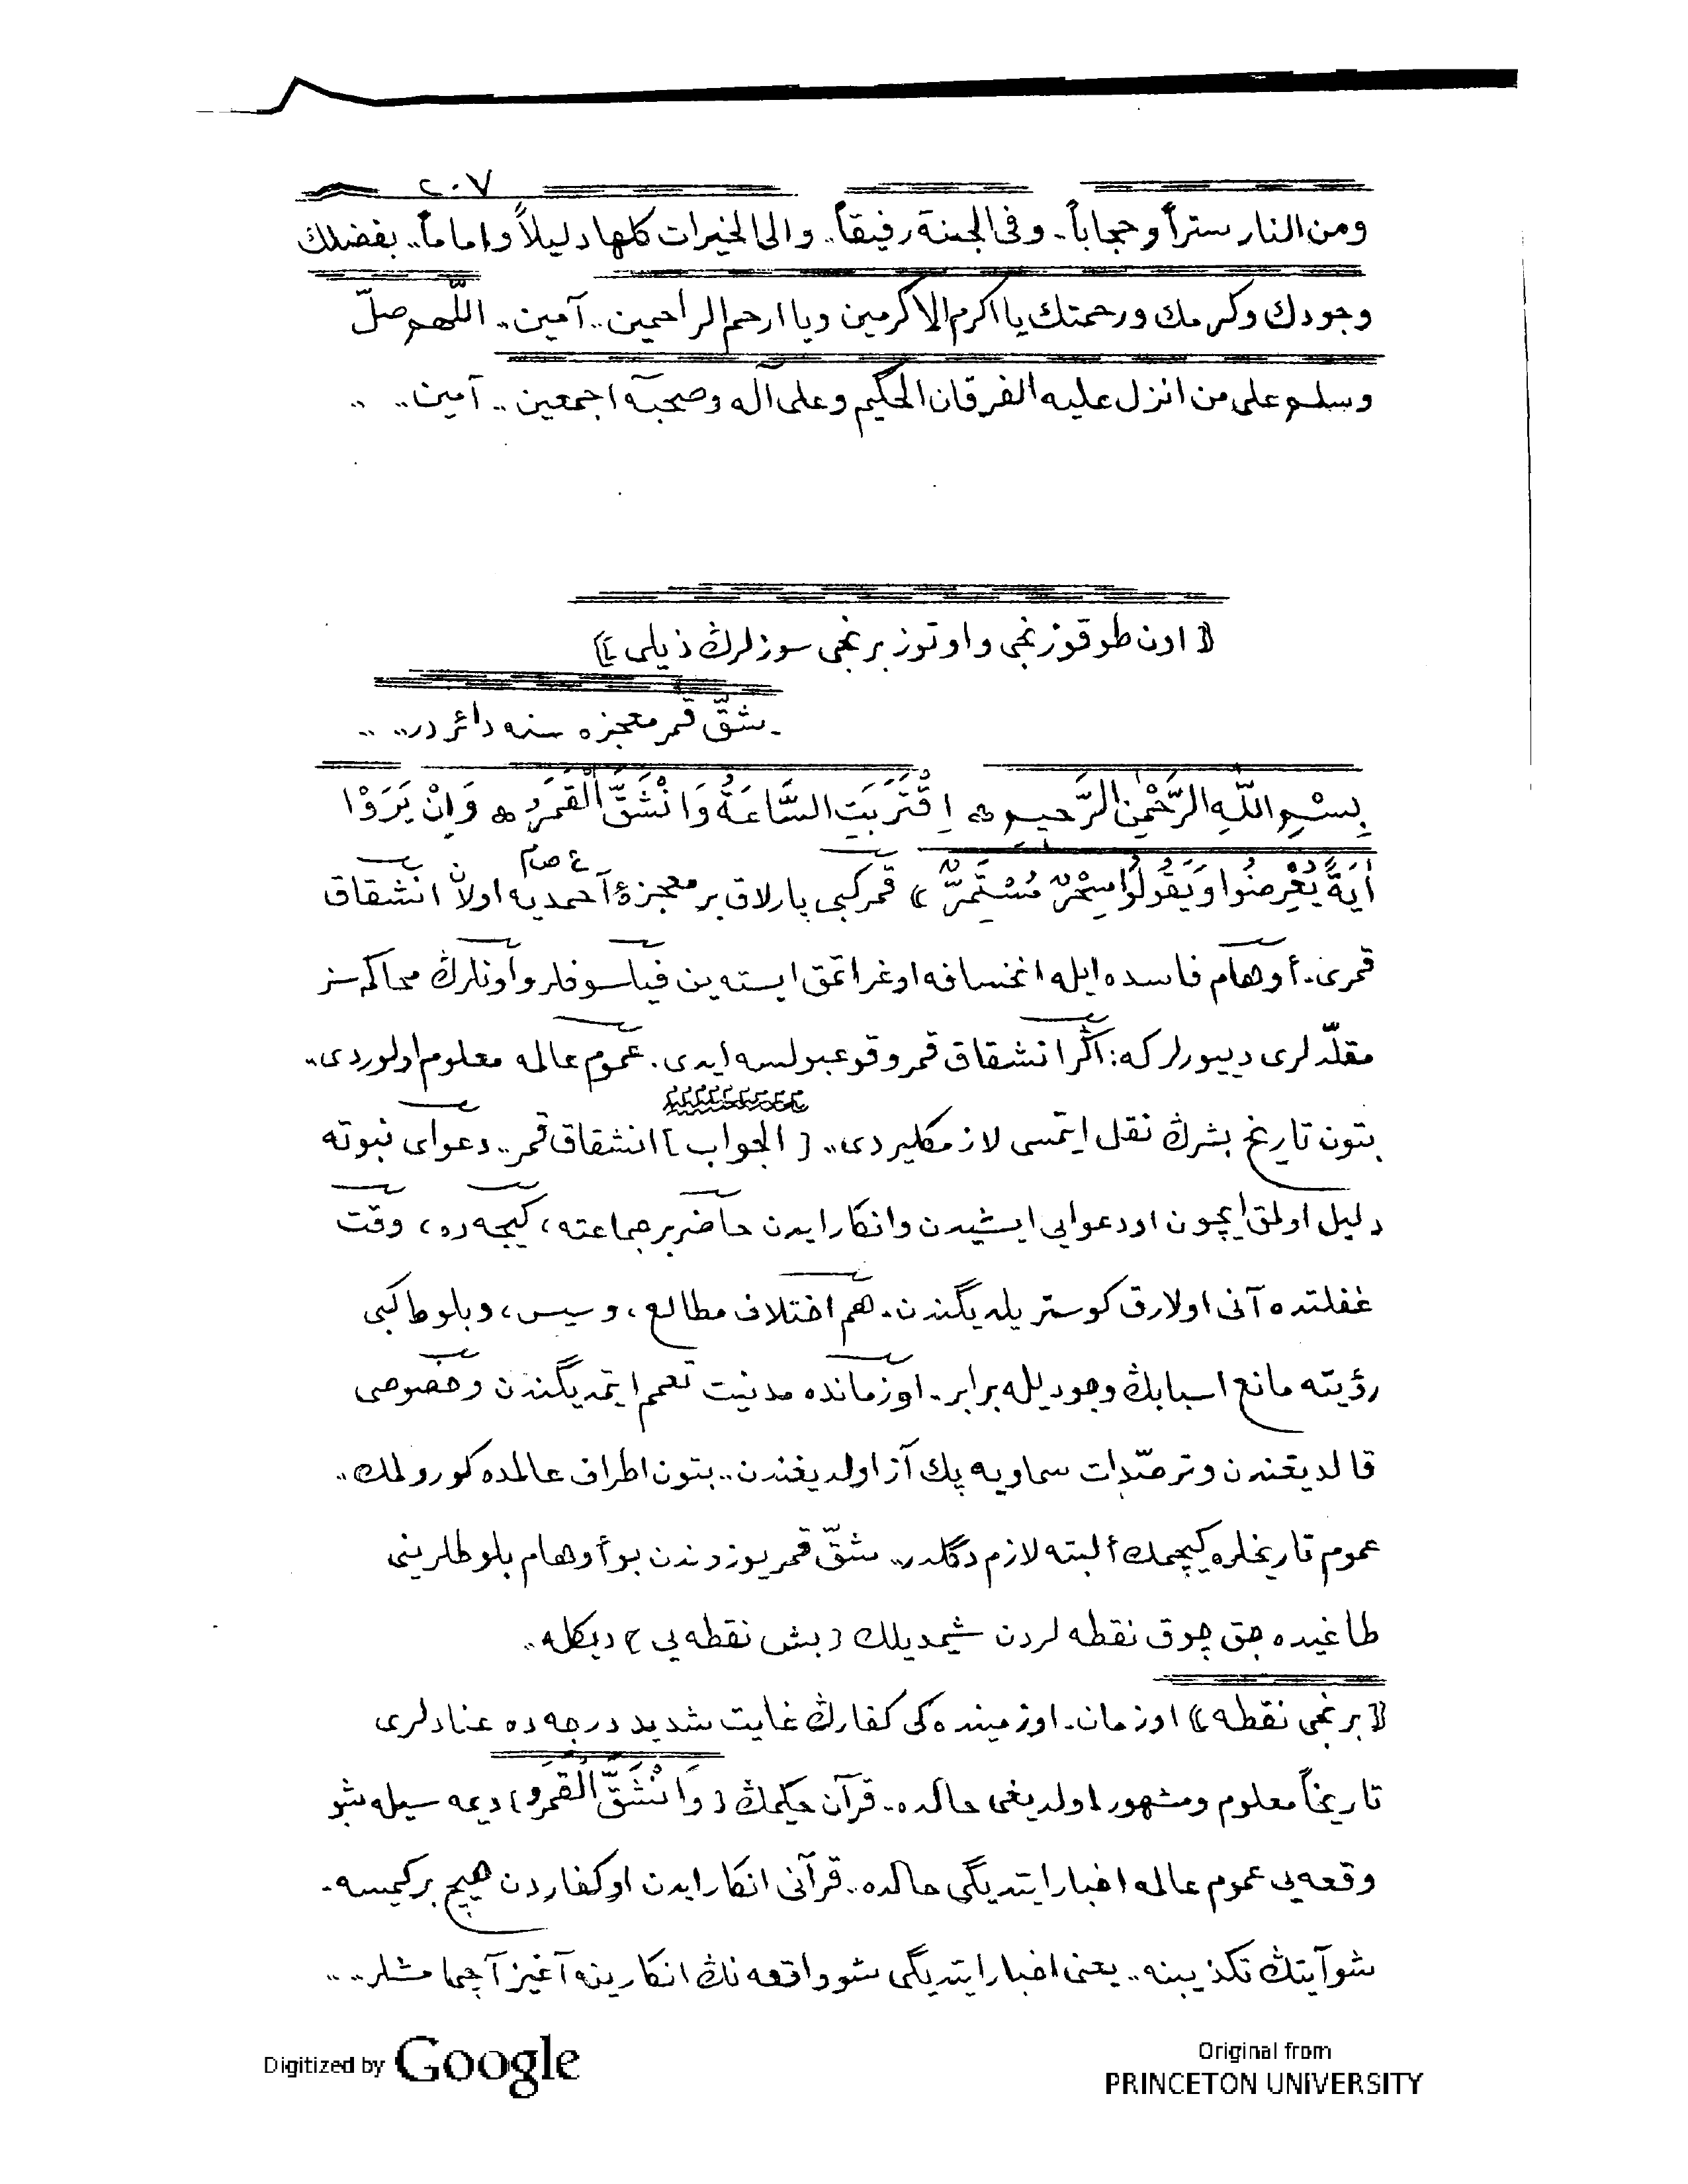 ٢٠٧
ومن النار ستراً وحجاباً.. وفى الجنة رفيقاً.. والى الخيرات كلها دليلاً واماماً.. بفضلك
وجودك وكرمك ورحمتك يا اكرم الاكرمين ويا ارحم الراحمين.. آمين.. اللّهم صلّ
وسلم على من انزل عليه الفرقان الحكيم وعلى آله وصحبه اجمعين.. آمين.. ..
﴿ اون طوقوزنجى و اوتوز برنجى سوزلرڭ ذيلى ﴾
شقّ قمر معجزه سنه دائردر.. ..
بِسْمِ اللّٰهِ الرَّحْمٰنِ الرَّحِيمِ ۞ اِقْتَرَبَتِ السَّاعَةُ وَانْشَقَّ الْقَمَرُ ۞ وَاِنْ يَرَوْا
اٰيَةً يُعْرِضُوا وَيَقُولُوا سِحْرٌ مُسْتَمِرٌّ ﴾ قمر كبى پارلاق بر معجزۀ احمديه ع ص م اولان انشقاق
قمرى. أوهام فاسده ايله انخسافه اوغراتمق ايسته ين فيلسوفلر و اونلرڭ محاكمه سز
مقلّدلرى دييورلر كه: اگر انشقاق قمر وقوعبولسه ايدى. عموم عالمه معلوم اولوردى..
بتون تاريخ بشرڭ نقل ايتمسى لازمكليردى.. [ الجواب ] انشقاق قمر.. دعواى نبوته
دليل اولمق ايچون او دعوايى ايشيدن و انكار ايدن حاضر بر جماعته، كيجه ده، وقت
غفلتده آنى اولارق كوستريلديگندن. هم اختلاف مطالع، و سيس، و بلوطلر كبى
رؤيته مانع اسبابڭ وجوديله برابر. او زمانده مدنيت تعمم ايتمديگندن و خصوصى
قالديغندن و ترصّدات سماويه پك آز اولديغندن.. بتون اطراف عالمده كورولمك..
عموم تاريخلره كيچمك ألبته لازم دگلدر.. شقّ قمر يوزوندن بو أوهام بلوطلرينى
طاغيده جق چوق نقطه لردن شيمديلك ﴿ بش نقطه يى ﴾ ديكله..
﴿ برنجى نقطه ﴾ او زمان. او زميندەكى كفارڭ غايت شديد درجه ده عنادلرى
تاريخاً معلوم و مشهور اولديغى حالده.. قرآن حكيمڭ ﴿ وَانْشَقَّ الْقَمَرُ ﴾ ديمه سيله شو
وقعه يى عموم عالمه اخبار ايتديگى حالده.. قرآنى انكار ايدن او كفاردن هيچ بر كيمسه.
شو آيتڭ تكذيبنه.. يعنى اخبار ايتديگى شو واقعه نڭ انكارينه آغيز آچمامشلر.. ..
Digitized by Google
Original from
PRINCETON UNIVERSITY